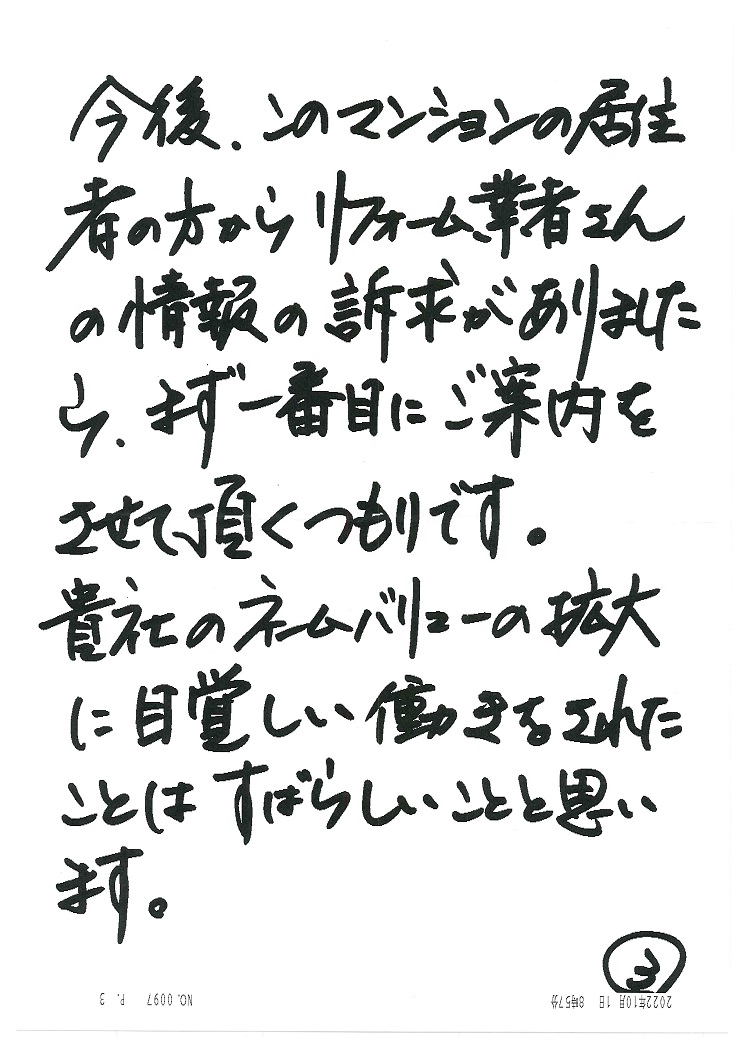 今後、このマンションの居住
者の方からリフォーム業者さん
の情報の訴求がありました
ら、まず一番目にご案内を
させて頂くつもりです。
貴社のネームバリューの拡大
に目覚しい働きをされた
ことはすばらしいことと思い
ます。
3
2022年10月 1日 8時57分 NO. 0097 P. 3